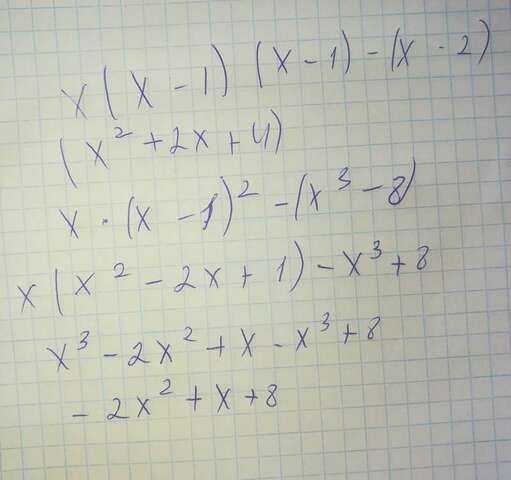 x(x-1)(x-1)-(x-2)
(x²+2x+4)
x·(x-1)²-(x³-8)
x(x²-2x+1)-x³+8
x³-2x²+x-x³+8
-2x²+x+8